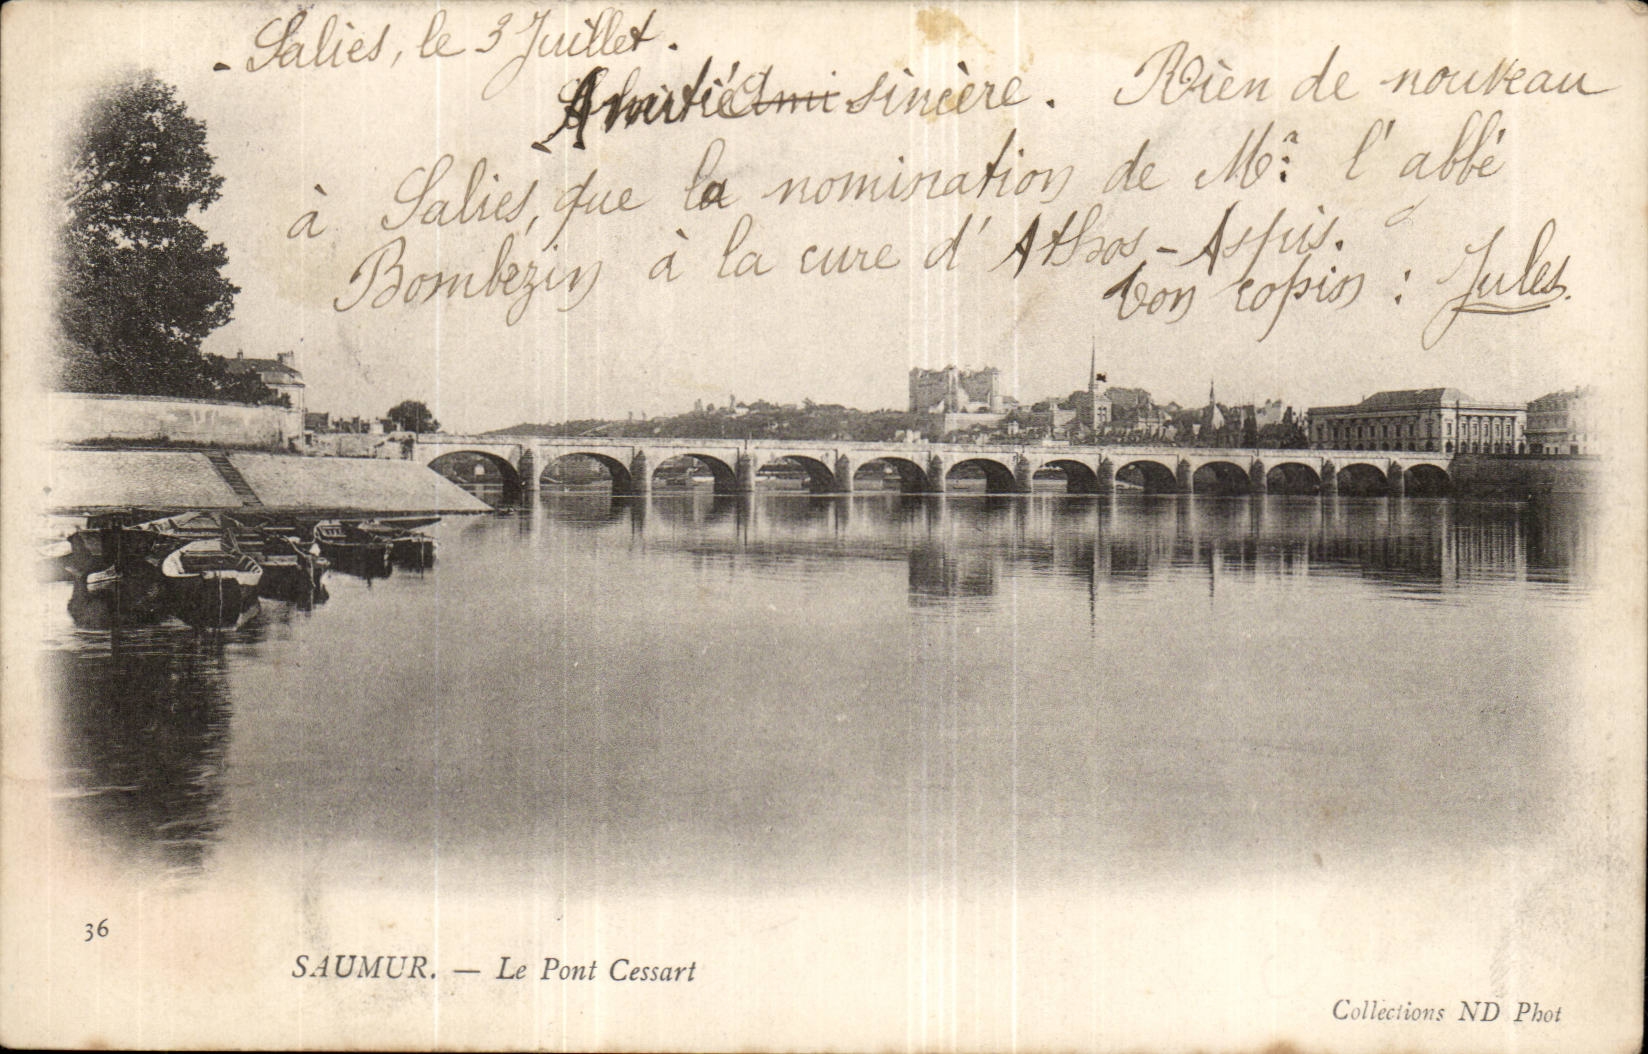 - Salies, le 3 Juillet.
Amitié Ami sincère. Rien de nouveau
à Salies, que la nomination de Mr: l'abbé
Bombezin à la cure d'Athos-Aspis.
ton copin : Jules.
36
SAUMUR. — Le Pont Cessart
Collections ND Phot